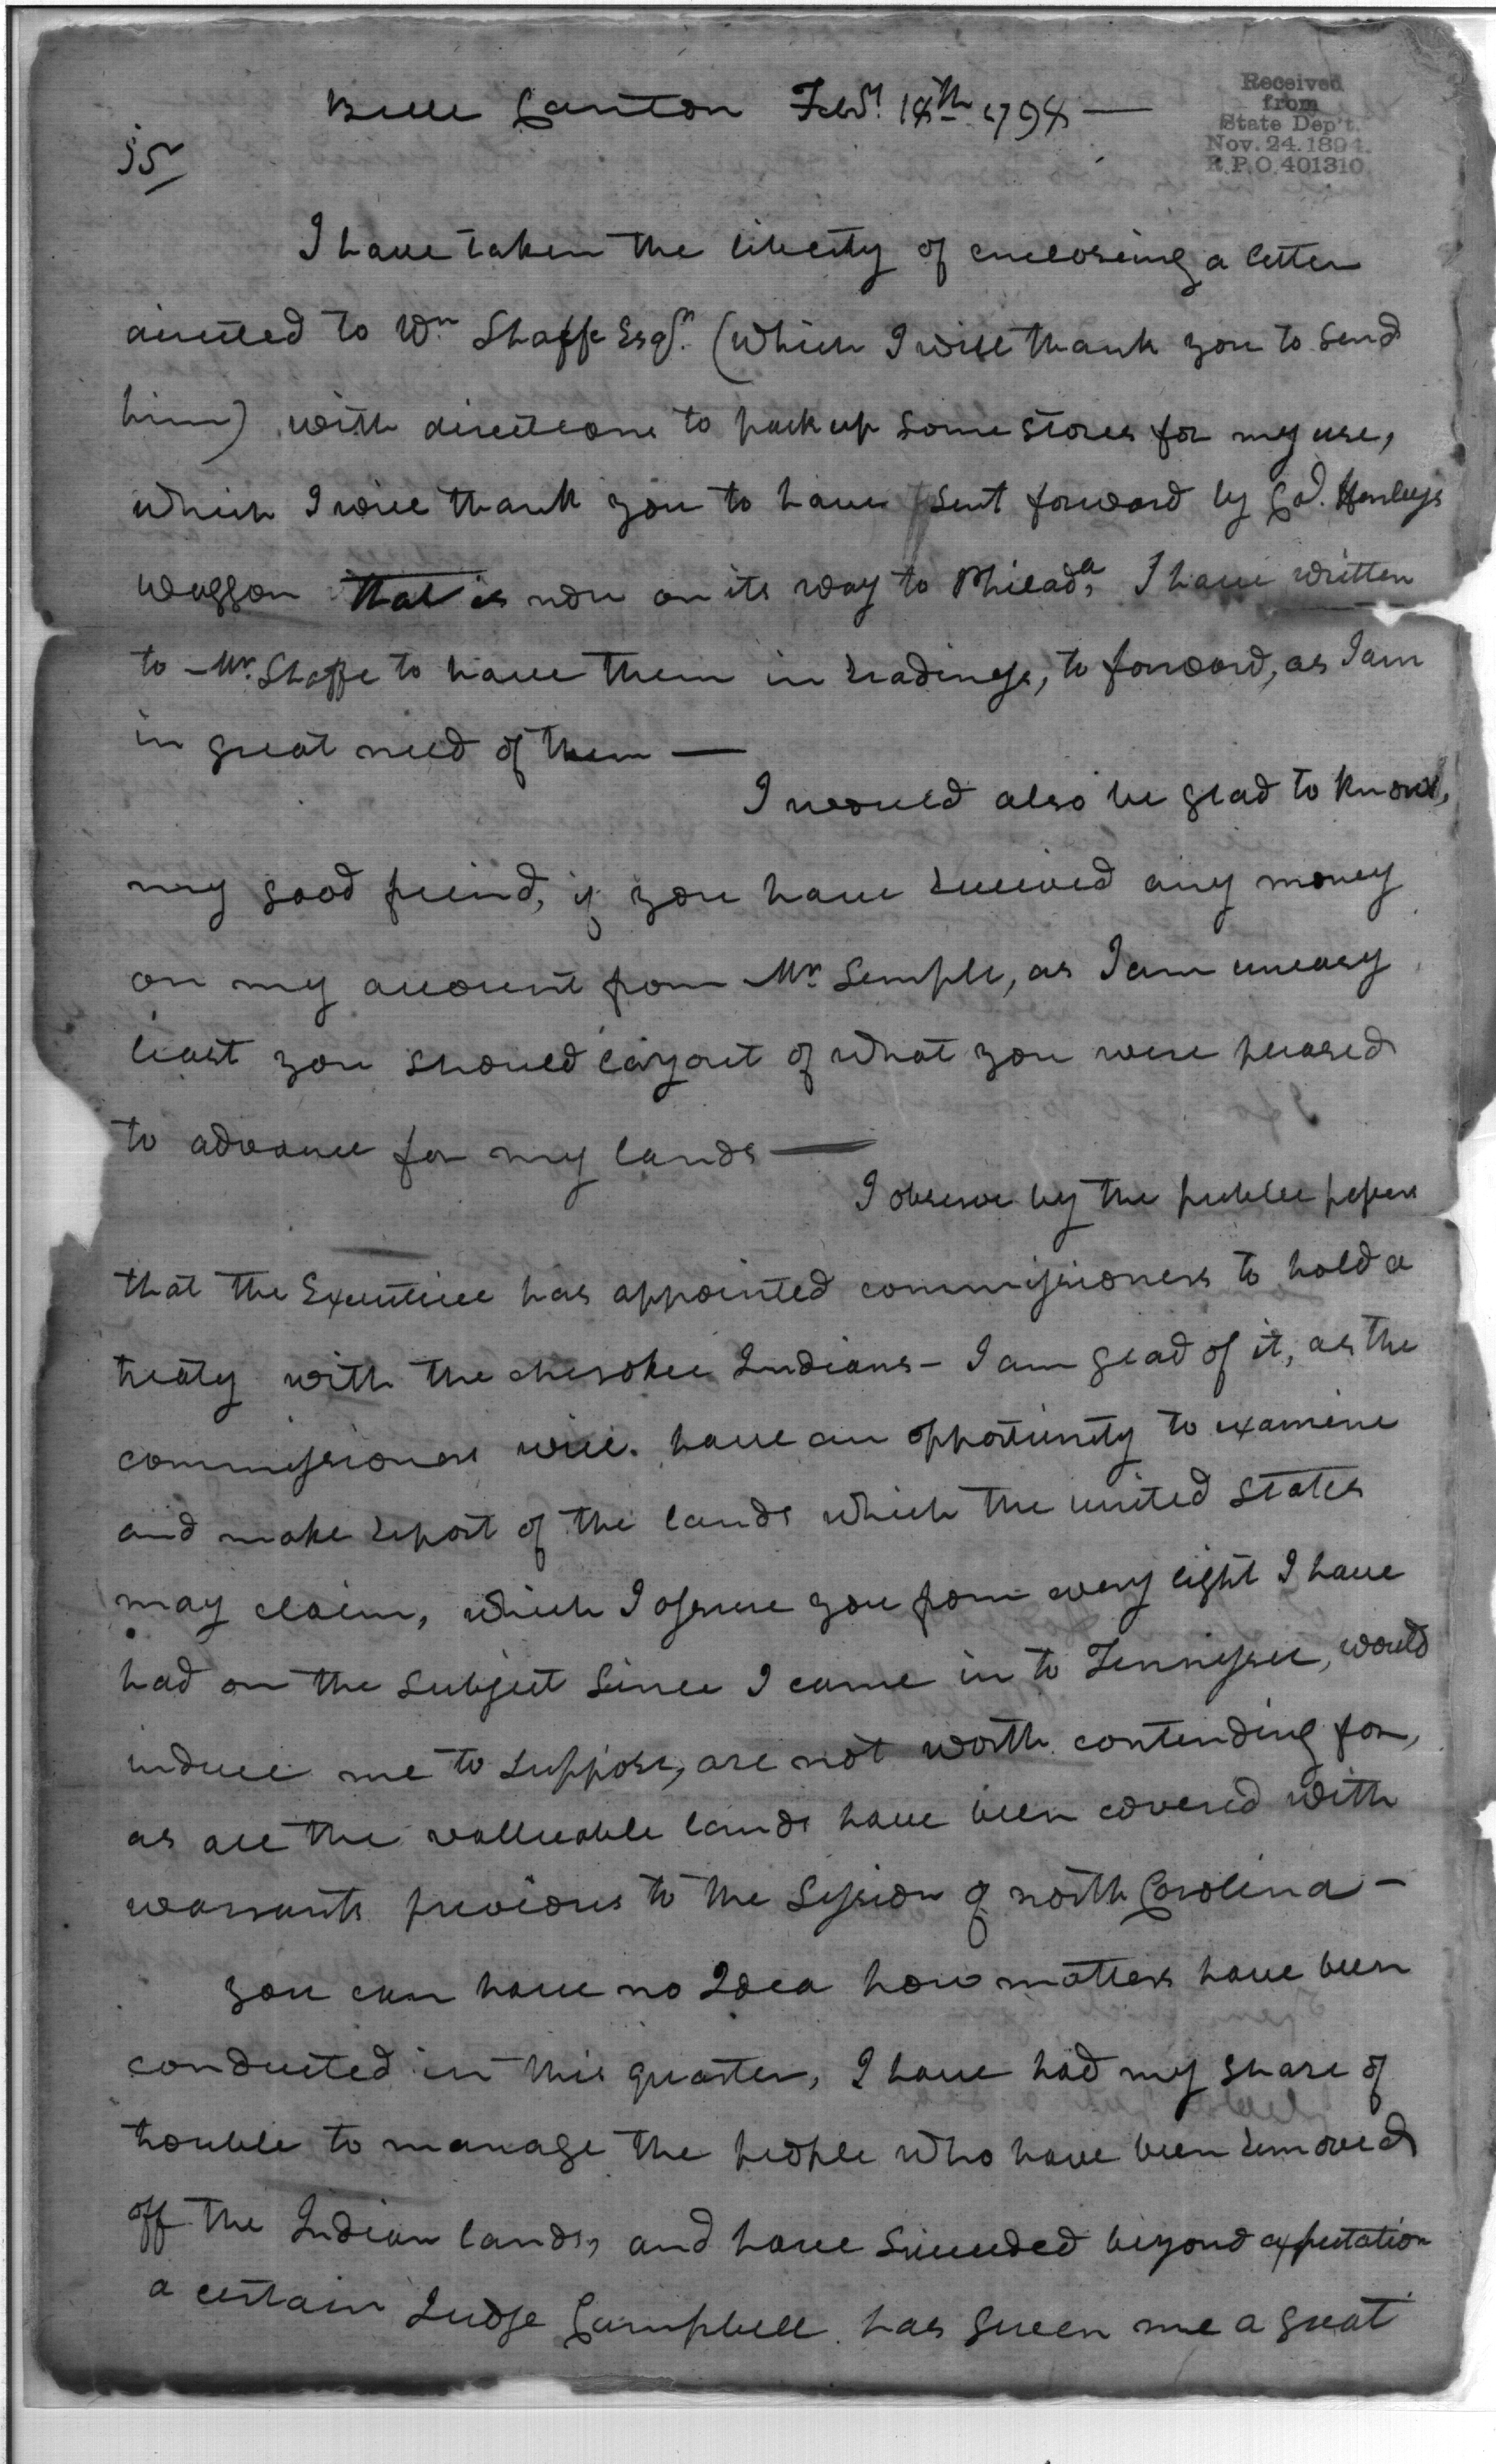 Belle Canton Febry. 18th 1798 —
Received
from
State Dep't.
Nov. 24. 1894.
R.P.O. 401310.
Sir
I have taken the liberty of encloseing a letter
directed to Wm. Shaffe Esqr. (which I will thank you to send
him) with directions to pack up some stores for my use,
which I will thank you to have sent forward by Col. Henleys
waggon that is now on its way to Philada, I have written
to Mr. Shaffe to have them in readiness, to forward, as I am
in great need of them —
I would also be glad to know,
my good friend, if you have received any money
on my account from Mr. Semple, as I am uneasy
least you should lay out of what you were pleased
to advance for my lands —
I observe by the publee papers
that the Executive has appointed commissioners to hold a
treaty with the cherokee Indians - I am glad of it, as the
commissioners will have an opportunity to examine
and make report of the lands which the united states
may claim, which I assure you from every light I have
had on the subject since I came in to Tennessee, would
induce me to suppose, are not worth contending for,
as all the valleuable lands have been covered with
warrants previous to the Session of north Carolina -
you can have no Idea how matters have been
conducted in this quarter, I have had my share of
trouble to manage the people who have been removed
off the Indian lands, and have succeeded beyond expectation
a certain Judge Campbell has given me a great